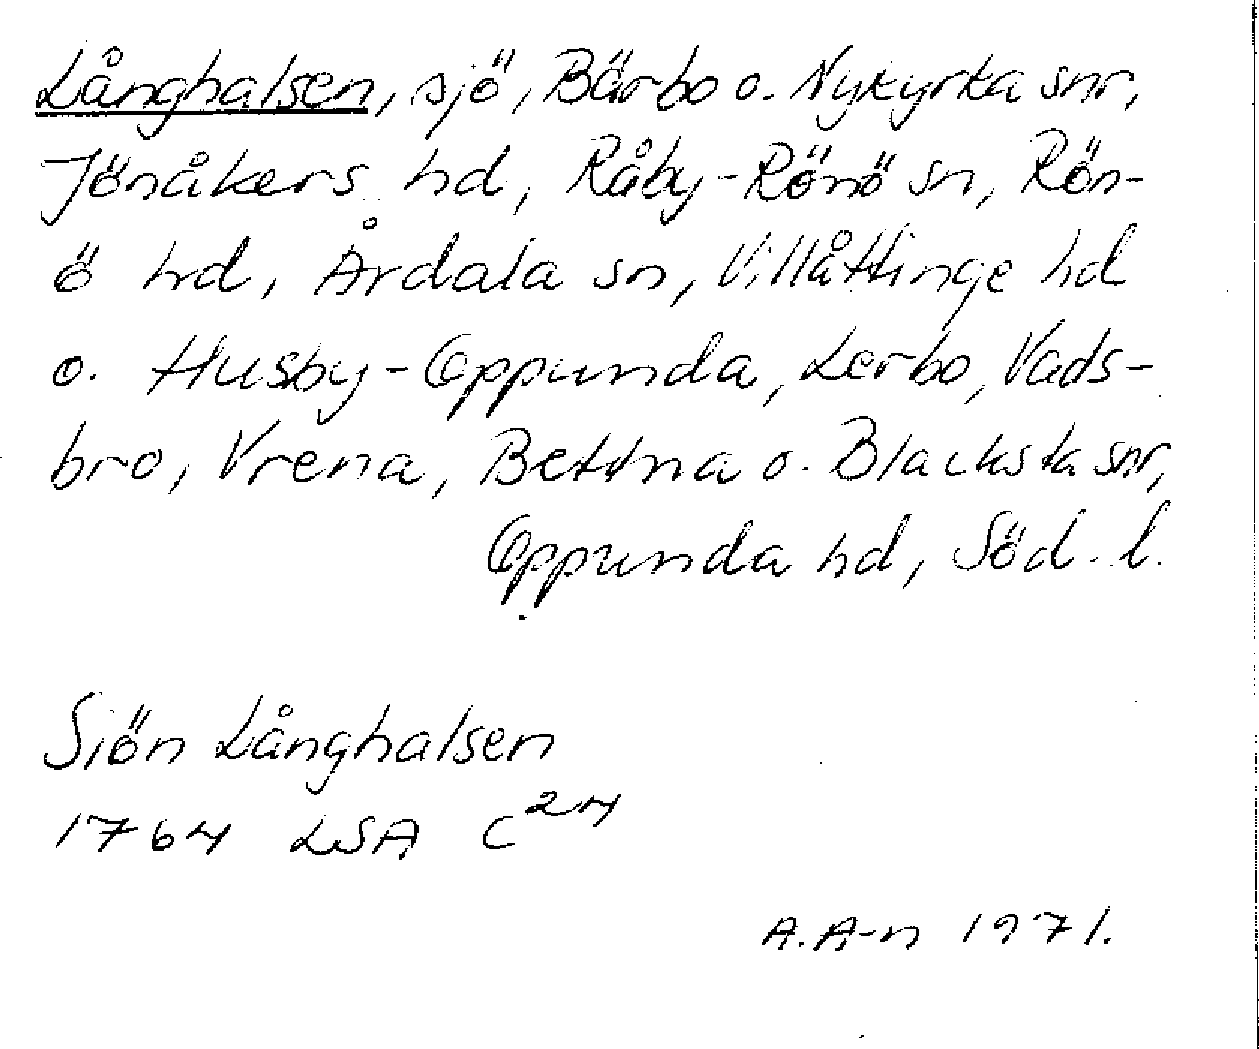 Långhalsen, sjö, Bärbo o. Nykyrka snr,
Jönåkers hd, Råby-Rönö sn, Rön-
ö hd, Årdala sn, Villåttinge hd
o. Husby-Oppunda, Lerbo, Vads-
bro, Vrena, Bettna o. Blacksta snr,
Oppunda hd, Söd. l.
Siön Långhalsen
1764 LSA C²⁴
A.A-n 1971.